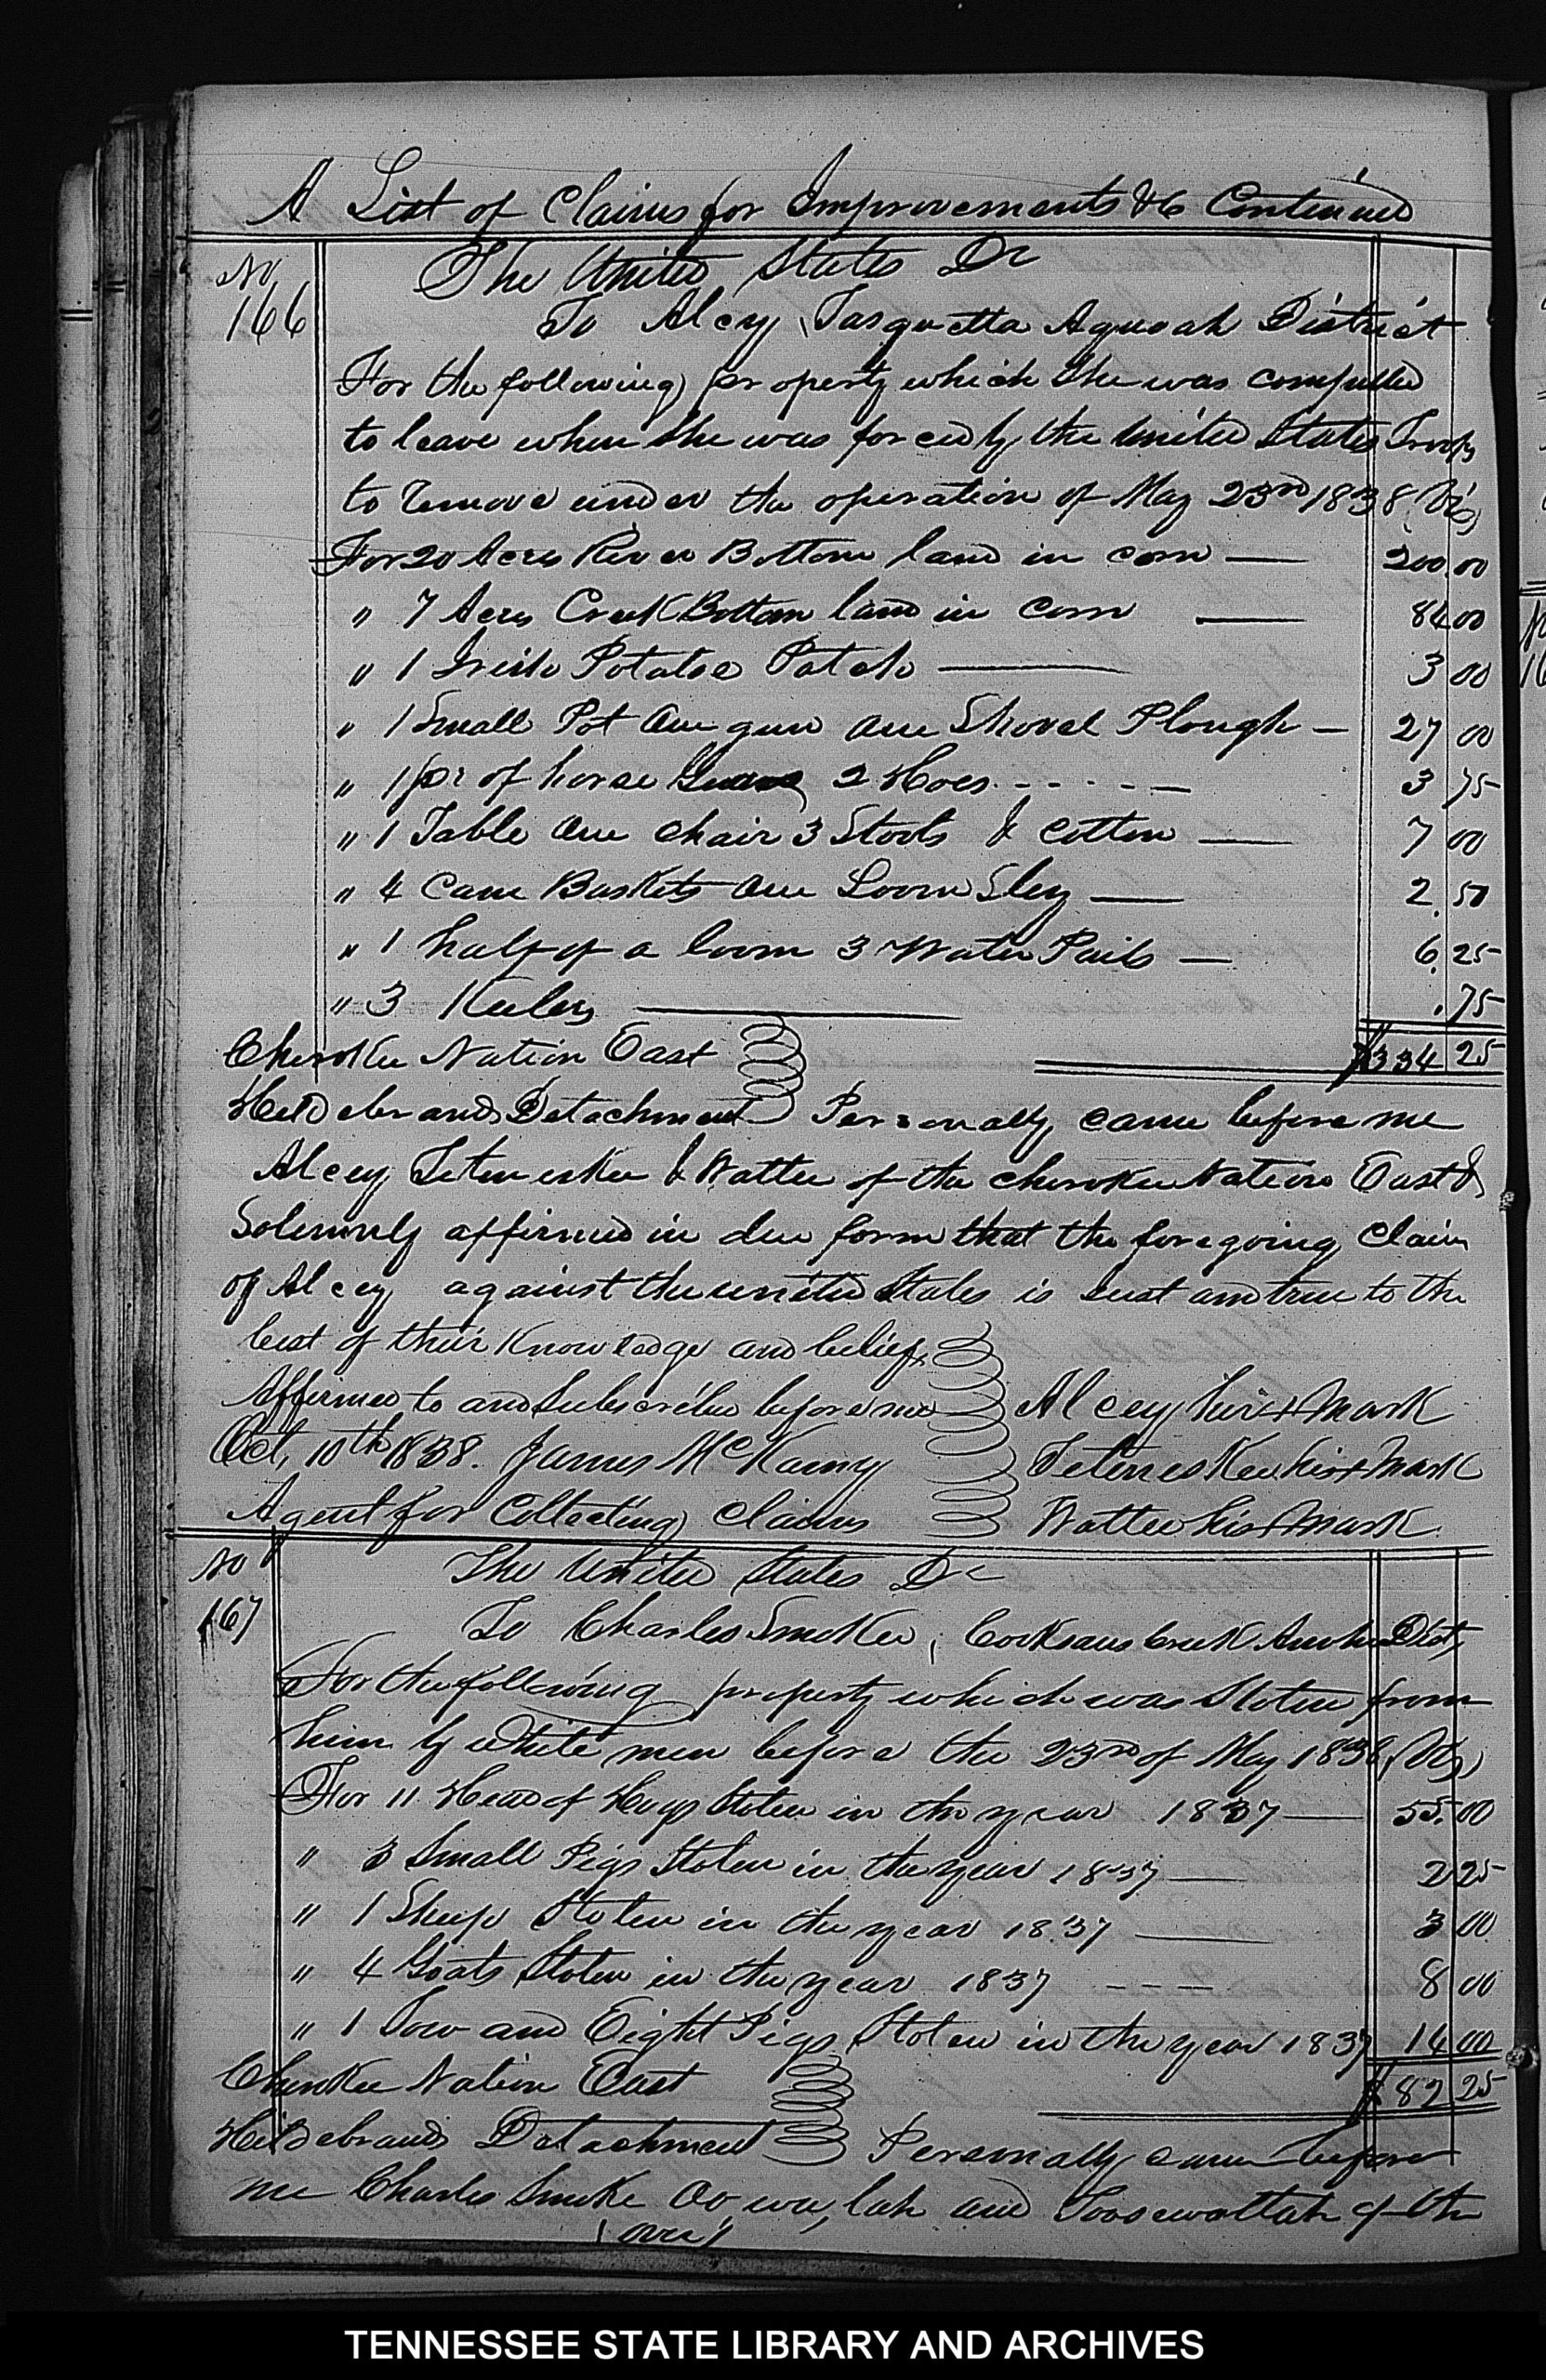 A List of Claims for Improvements &c Continued
No 166
The United States Dr
To Alcey, Tasquetta Aquoah District
For the following property which She was compelled
to leave when She was forced by the United States Troops
to remove under the operation of May 23rd 1838 Viz
For 20 Acres River Bottom land in corn — 200.00
" 7 Acres Creek Bottom land in Corn — 84 00
" 1 Irish Potatoe Patch — 3 00
" 1 Small Pot One gun One Shovel Plough — 27 00
" 1 pr of horse 2 Hoes - - - - - 3 75
" 1 Table One chair 3 Stools & cotton — 7 00
" 4 Cane Baskets One Loom Sley — 2.50
" 1 half of a loom 3 Water Pails — 6.25
" 3 Keelers — .75
Cherokee Nation East $334 25
Hildebrands Detachment Personally came before me
Alcey, Teteneskee & Wattee of the cherokee Nation East &
Solemnly affirmed in due form that the foregoing Claim
of Alcey against the united States is Just and true to the
best of their Knowledge and belief,
Affirmed to and Subscribed before me Alcey her + mark
Oct, 10th 1838. James McKamy Teteneskee his + mark
Agent for Collecting Claims Wattee his + mark
No 167
The United States Dr
To Charles Smoke, Cocksans Creek Amohe Dist,
For the following property which was Stolen from
him by White men before the 23rd of May 1838, Viz,
For 11 Head of Hogs Stolen in the year 1837 — 55.00
" 3 Small Pigs Stolen in the year 1837 — 2 25
" 1 Sheep Stolen in the year 1837 — 3 00
" 4 Goats Stolen in the year 1837 - - - 8 00
" 1 Sow and Eight Pigs Stolen in the year 1837 14 00
Cherokee Nation East $82 25
Hildebrands Detachment Personally came before
me Charles Smoke Oo, wa, lah and Toosawaltah of the
(over)
TENNESSEE STATE LIBRARY AND ARCHIVES